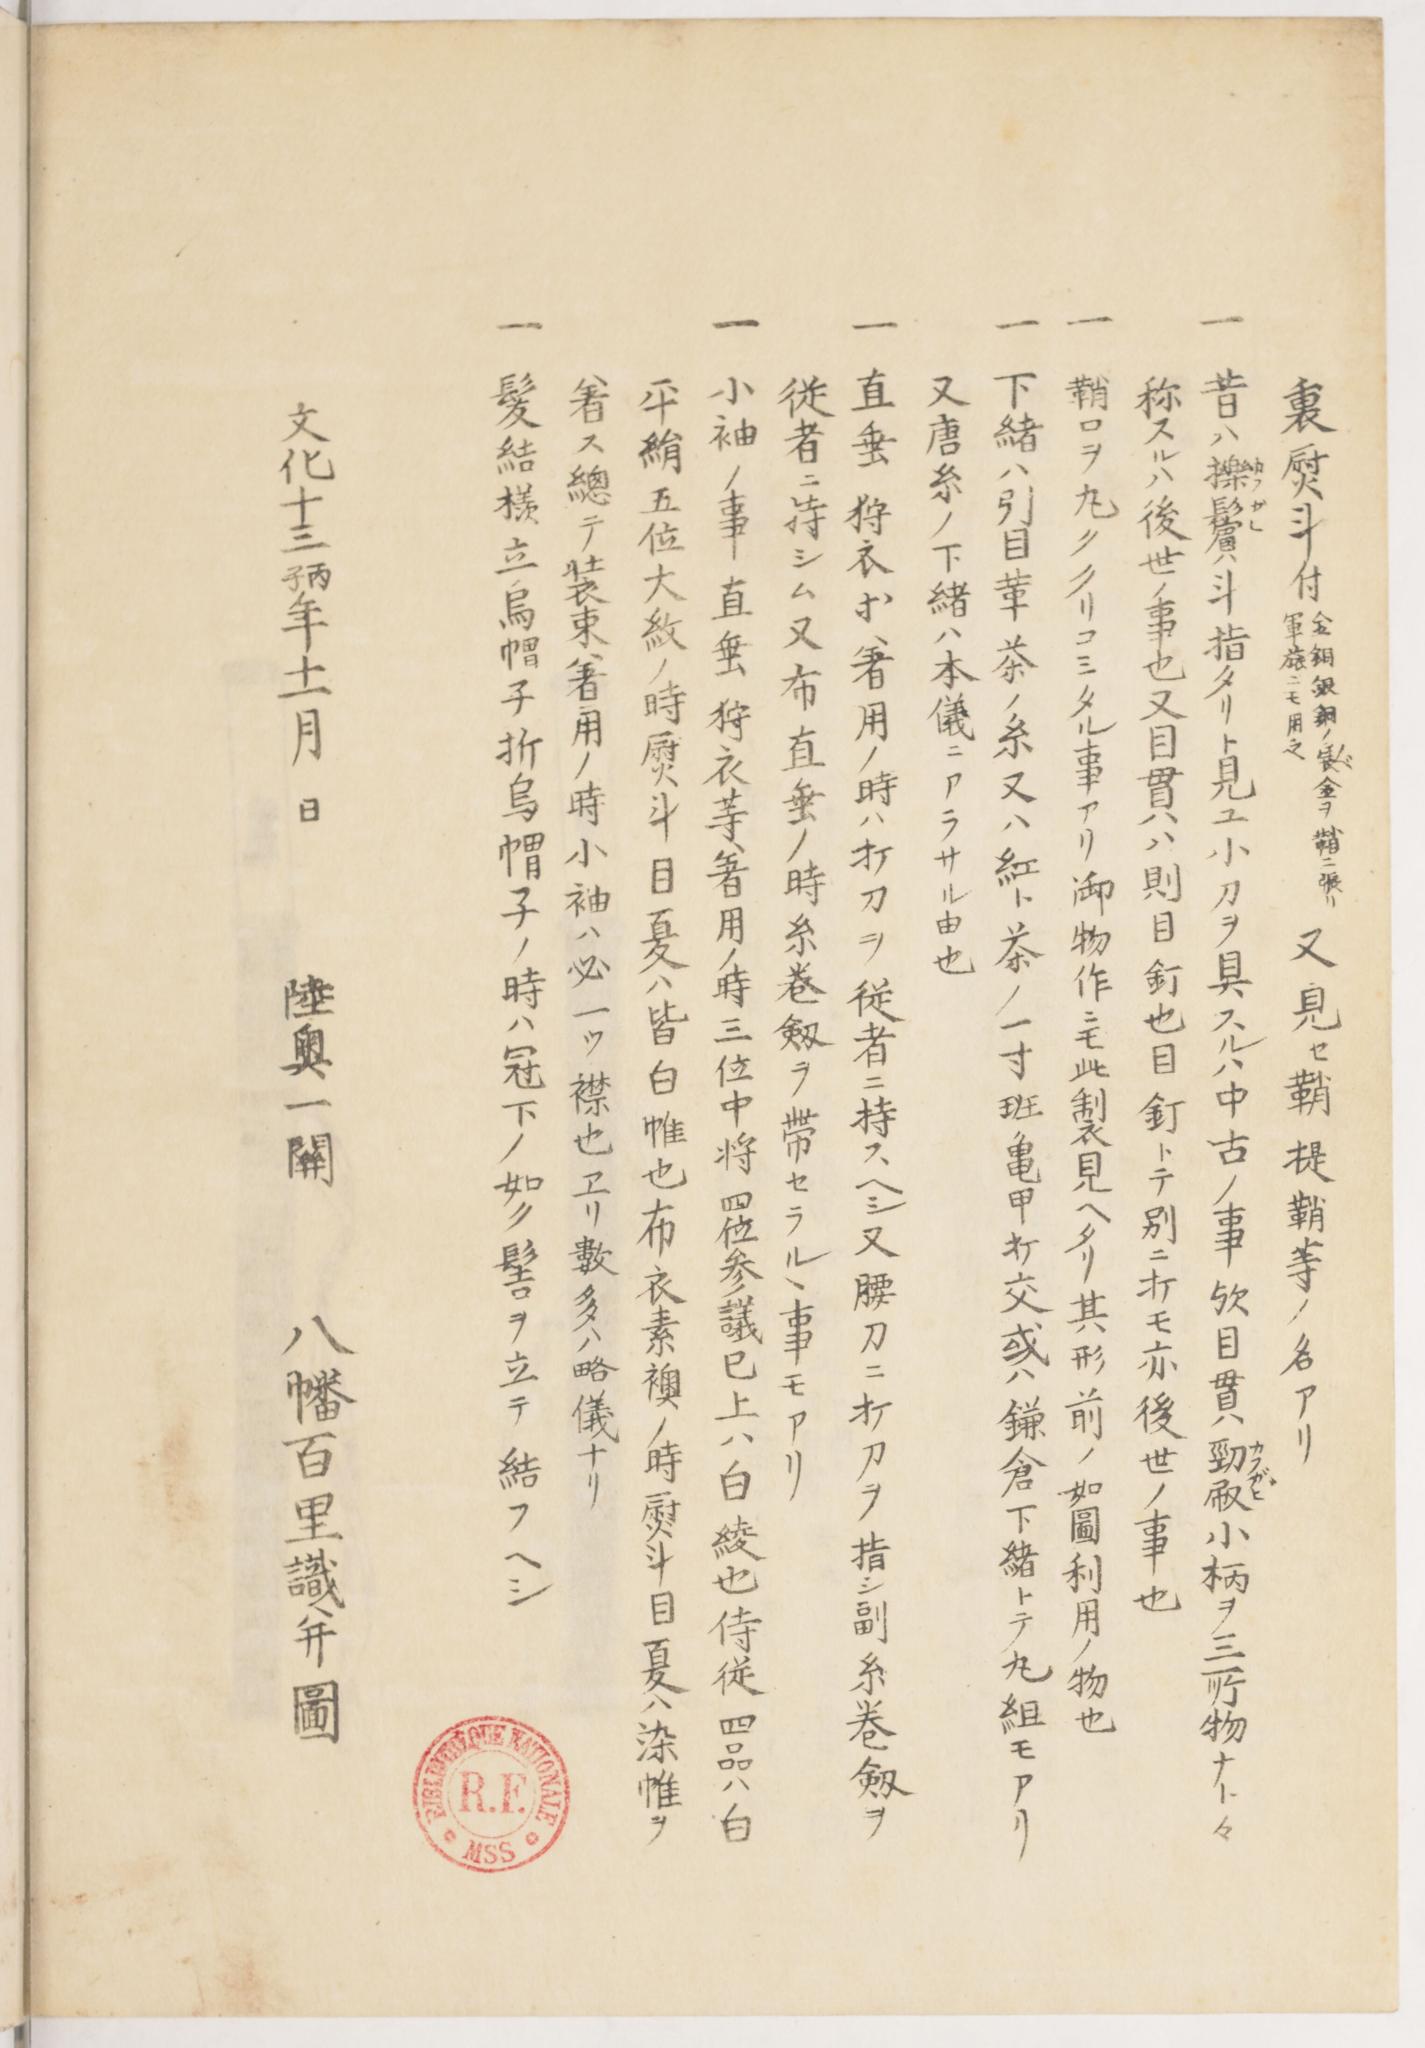 裏熨斗付金銅銀銅ノ裏金ヲ鞘ニ張リ軍旅ニモ用之又見セ鞘提鞘等ノ名アリ
一 昔ハ掻鬢ハ斗指タリト見ユ小刀ヲ具スルハ中古ノ事欤目貫ハ小柄ヲ三所物ナト々
称スルハ後世ノ事也又目貫ハ則目釘也目釘トテ別ニ打モ亦後世ノ事也
一 鞘口ヲ丸ククリコミタル事アリ御物作ニモ此製見ヘタリ其形前ノ如圖利用ノ物也
一 下緒ハ引目革茶ノ糸又ハ紅ト茶ノ一寸斑亀甲打交或ハ鎌倉下緒トテ丸組モアリ
又唐糸ノ下緒ハ本儀ニアラサル由也
一 直垂狩衣ホ著用ノ時ハ打刀ヲ従者ニ持スヘシ又腰刀ニ打刀ヲ指シ副糸巻劔ヲ
従者ニ持シム又布直垂ノ時糸巻劔ヲ帶セラルヽ事モアリ
一 小袖ノ事直垂狩衣等著用ノ時三位中将四位参議已上ハ白綾也侍従四品ハ白
平絹五位大紋ノ時熨斗目夏ハ皆白帷也布衣素襖ノ時熨斗目夏ハ染帷ヲ
著ス總テ装束著用ノ時小袖ハ必一ツ襟也ヱリ數多ハ略儀ナリ
一 髪結様立烏帽子折烏帽子ノ時ハ冠下ノ如ク髻ヲ立テ結フヘシ
文化十三丙子年十一月 日 陸奥一關 八幡百里識并圖
BIBLIOTHÈQUE NATIONALE
R.F.
MSS